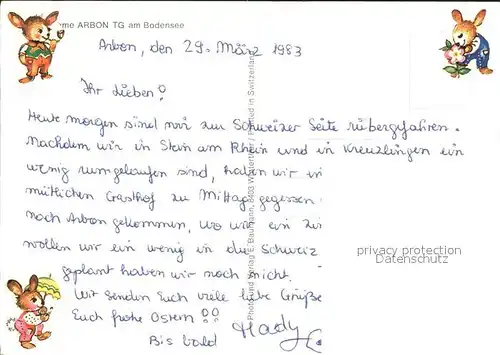 me ARBON TG am Bodensee
Arbon, den 29. März 1983
Ihr Lieben!
Heute morgen sind wir zur Schweizer Seite rübergefahren.
Nachdem wir in Stein am Rhein und in Kreuzlingen ein
wenig rumgelaufen sind, haben wir in
mütlichen Gasthof zu Mittag gegessen
nach Arbon gekommen, wo wir ein Zi
wollen wir ein wenig in die Schweiz
geplant haben wir noch nicht.
Wir senden Euch viele liebe Grüße
Euch frohe Ostern!!
Bis bald Hady
Photo und Verlag E. Baumann, 8403 Winterthur Printed in Switzerland
privacy protection
Datenschutz